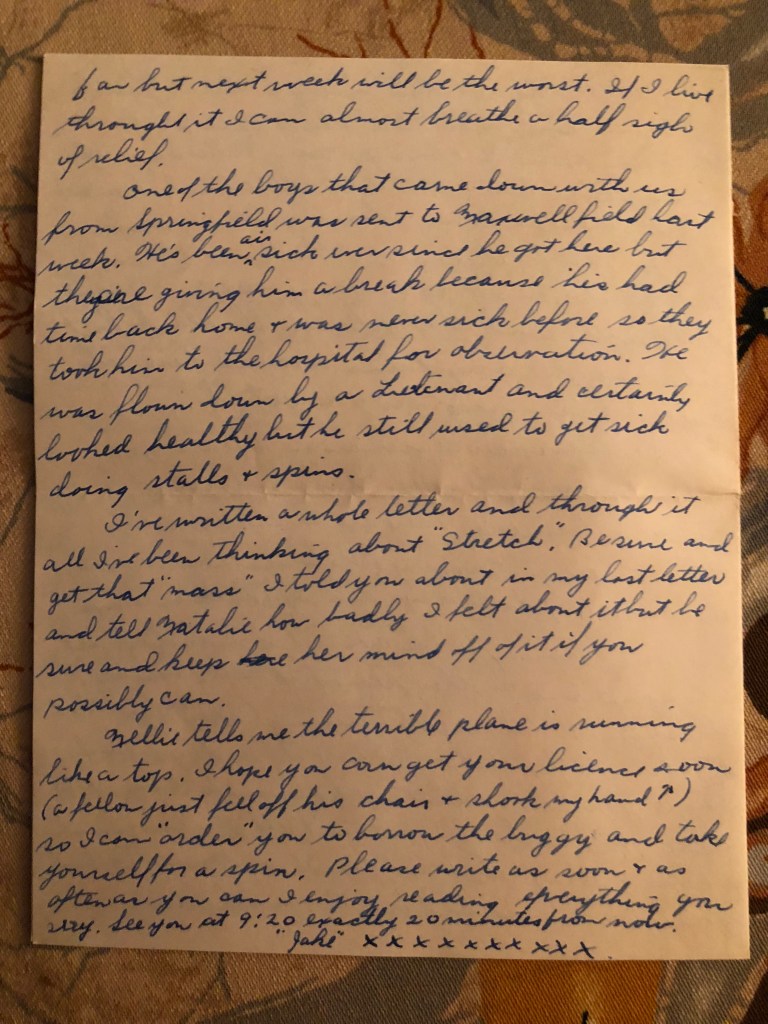 far but next week will be the worst. If I live
throught it I can almost breathe a half sigh
of relief.
One of the boys that came down with us
from Springfield was sent to Maxwell field last
week. He's been air sick ever since he got here but
they're giving him a break because he's had
time back home + was never sick before so they
took him to the hospital for observation. He
was flown down by a Lieutenant and certainly
looked healthy but he still used to get sick
doing stalls + spins.
I've written a whole letter and through it
all I've been thinking about "Stretch". Be sure and
get that "mass" I told you about in my last letter
and tell Natalie how badly I felt about it but be
sure and keep her mind off of it if you
possibly can.
Nellie tells me the terrible plane is running
like a top. I hope you can get your licence soon
(a fellow just fell off his chair + shook my hand)
so I can "order" you to borrow the buggy and take
yourself for a spin. Please write as soon + as
often as you can I enjoy reading everything you
say. See you at 9:20 exactly 20 minutes from now.
"Jake" x x x x x x x x x x.